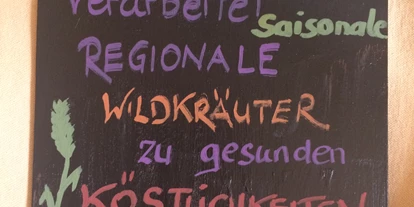 verarbeitet
saisonale
REGIONALE
WILDKRÄUTER
zu gesunden
KÖSTLICHKEITEN